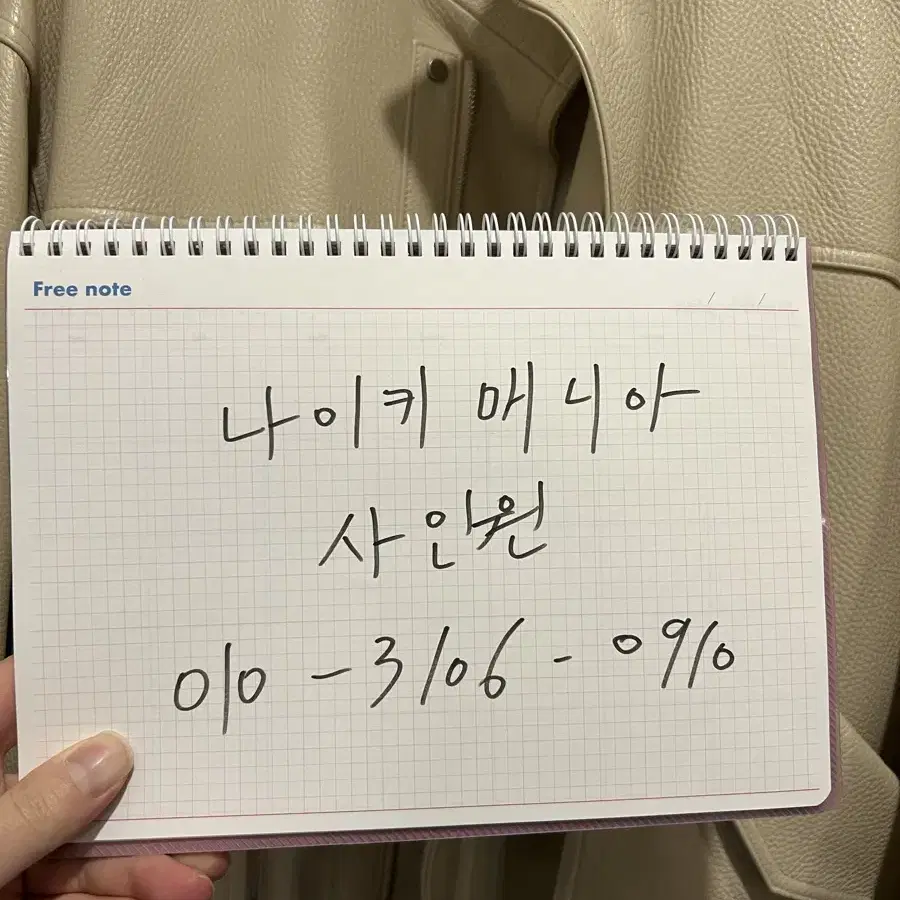 Free note
나이키 매니아
사인원
010 - 3106 - 0910